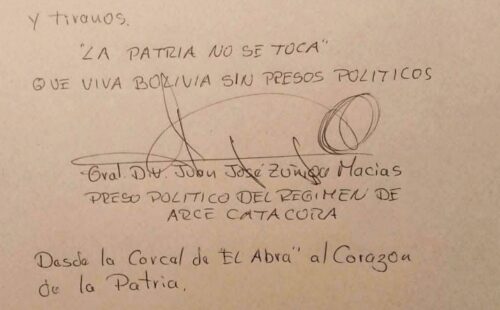 y tiranos.
"LA PATRIA NO SE TOCA"
QUE VIVA BOLIVIA SIN PRESOS POLITICOS
Gral. Div. Juan José Zúñiga Macias
PRESO POLITICO DEL REGIMEN DE
ARCE CATACORA
Desde la Carcal de "EL Abra" al Corazon
de la Patria.